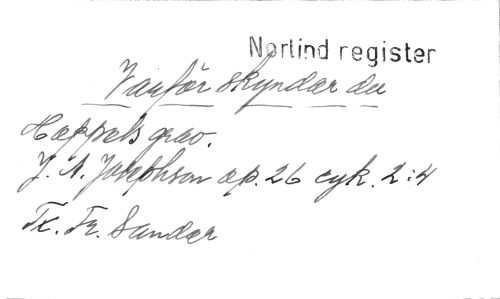 Norlind register
Varför skyndar du
Hoppets grav.
J. A. Josephson op. 26 cyk. 2:4
Tx. Fr. Sander